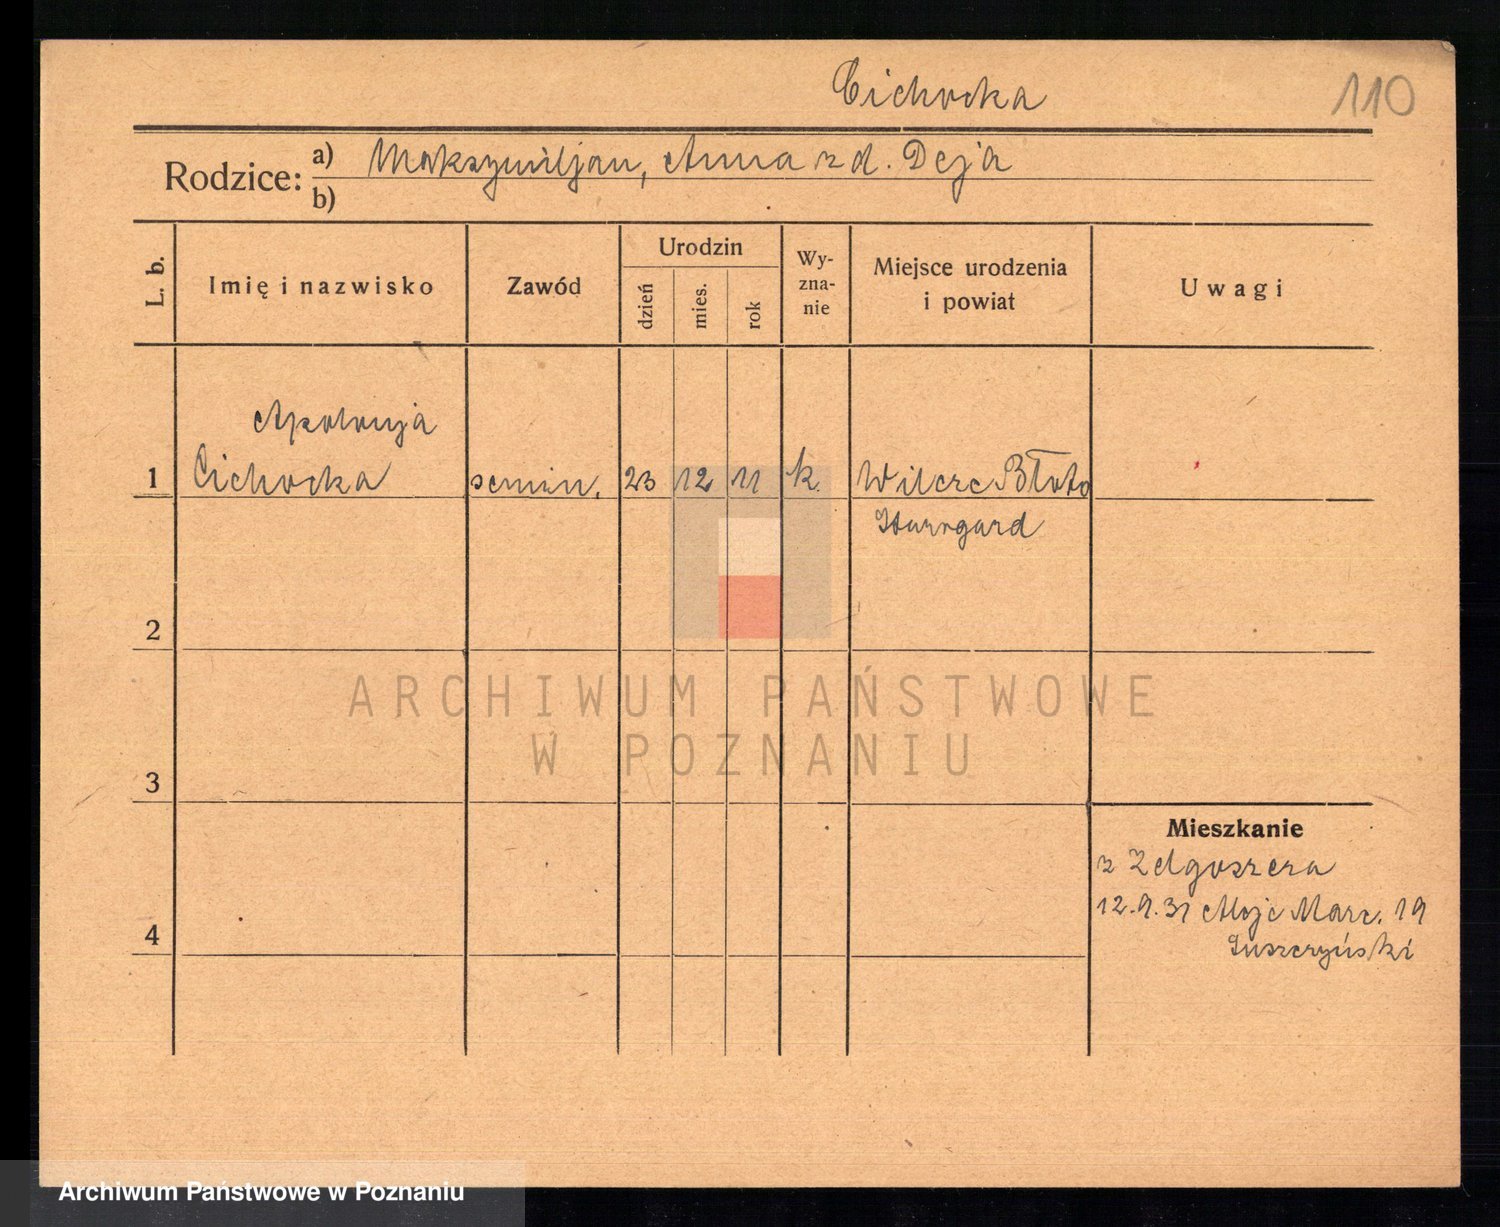 Cichocka 110
Rodzice: a) Maksymiljan, Anna z d. Deja
b)
L. b.
Imię i nazwisko
Zawód
Urodzin
dzień
mies.
rok
Wy-
zna-
nie
Miejsce urodzenia
i powiat
Uwagi
Apolonja
1 Cichocka semin. 23 12 11 k. Wilcze Błota
Starogard
2
3
4
Mieszkanie
z Zelgoszcza
12.9.31 Aleje Marc. 19
ARCHIWUM PAŃSTWOWE
W POZNANIU
Archiwum Państwowe w Poznaniu